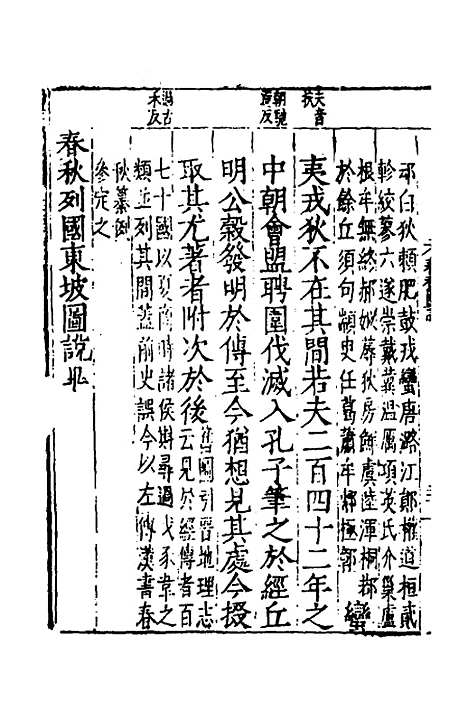 夫音扶
朝馳遥反
過古禾反
邳白狄賴肥鼓戎蠻唐潞江鄖權道桓貳
軫絞蓼六遂崇戴冀温厲項英氏介巢廬
根牟無終郝姒蓐狄房鮮虞陸渾桐鄀
於餘丘須句顓史任葛蕭牟郕極鄣
蠻
夷戎狄不在其間若夫二百四十二年之
中朝會盟聘圍伐滅入孔子筆之於經丘
明公穀發明於傳至今猶想見其處今掇
取其尤著者附次於後
舊圖引晉地理志
云見於經傳者百
七十國以夏商時諸侯斟尋過戈豕韋之
類並列其間蓋前史誤今以左傳漢書春
秋纂例
參定之
春秋列國東坡圖說